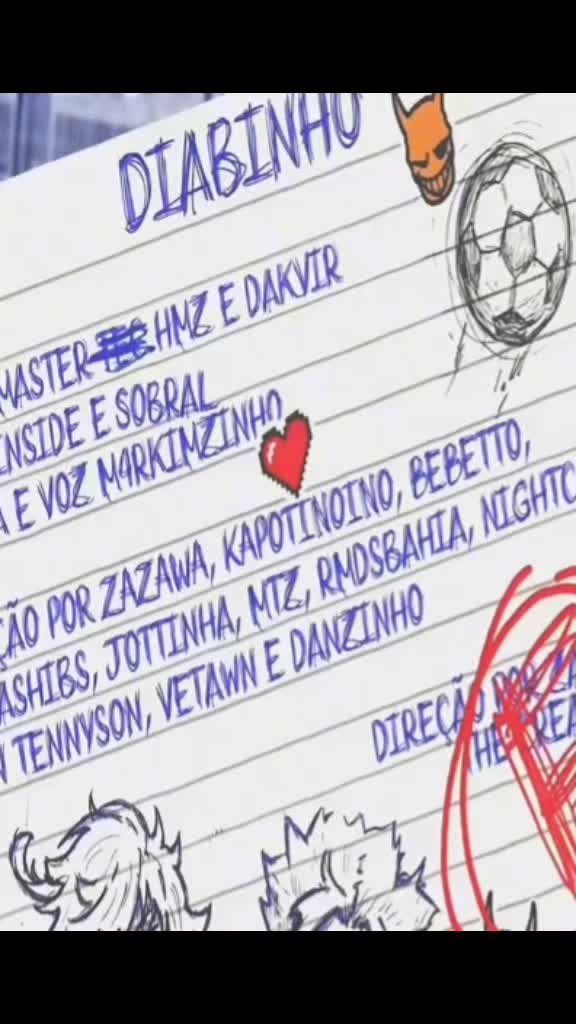 DIABINHO
MASTER HMZ E DAKVIR
INSIDE E SOBRAL
A E VOZ M4RKIMZINHO
ÇÃO POR ZAZAWA, KAPOTINOINO, BEBETTO,
ASHIBS, JOTTINHA, MTZ, RMDSBAHIA, NIGHTC
N TENNYSON, VETAWN E DANZINHO
DIREÇÃO POR